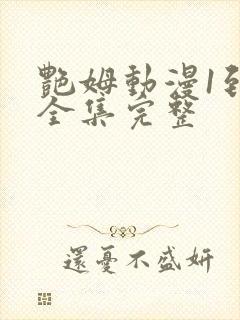 艷姆動漫1到
全集完整
還憂不盛妍